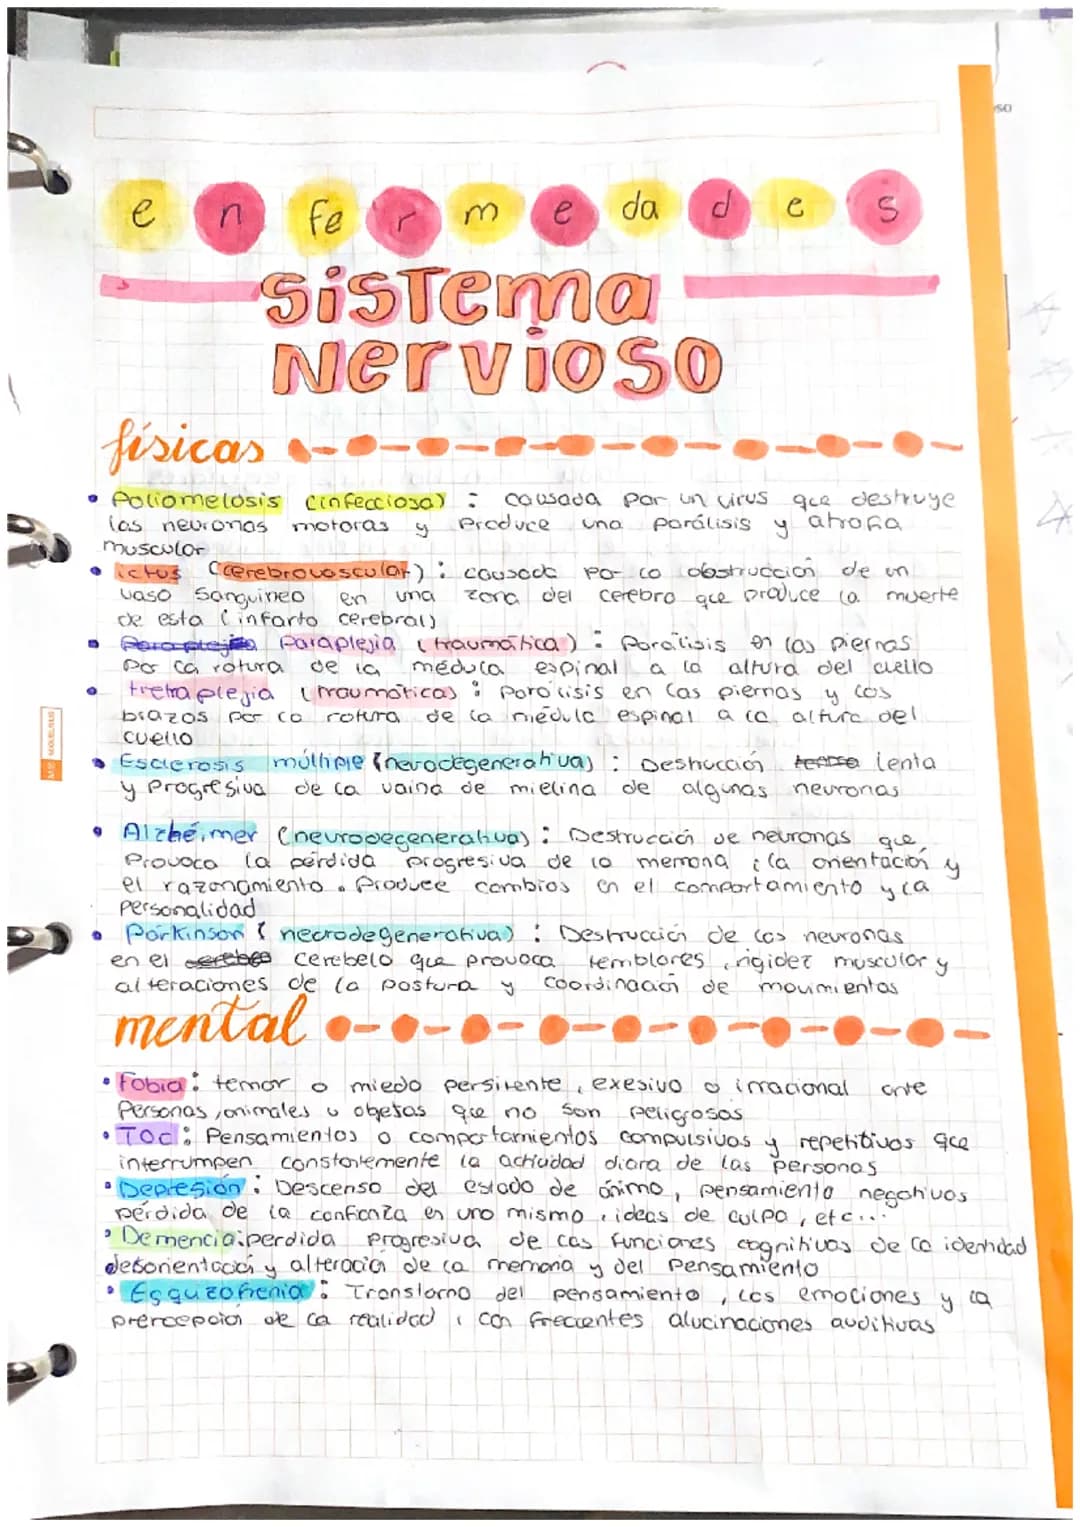 enfermedades
sistema
nervioso
físicas
• Poliomelosis (infecciosa) : causada por un virus que destruye
las neuronas motoras y produce una parálisis y atrofia
muscular
• ictus (cerebrovascular) : causada por la obstrucción de un
vaso sanguineo en una zona del cerebro que produce la muerte
de esta (infarto cerebral)
• Paraplejia Paraplejia (traumática) : Parálisis en las piernas
por la rotura de la médula espinal a la altura del cuello
• tretraplejia (traumáticas) : parálisis en las piernas y los
brazos por la rotura de la médula espinal a la altura del
cuello
• Esclerosis múltiple (neurodegenerativa) : Destrucción lenta
y progresiva de la vaina de mielina de algunas neuronas
• Alzhéimer (neurodegenerativa) : Destrucción de neuronas que
provoca la pérdida progresiva de la memoria, la orientación y
el razonamiento. Produce cambios en el comportamiento y la
personalidad
• Párkinson (neurodegenerativa) : Destrucción de las neuronas
en el cerebelo que provoca temblores, rigidez muscular y
alteraciones de la postura y coordinación de movimientos
mental
• Fobia : temor o miedo persitente, exesivo o irracional ante
personas, animales u objetos que no son peligrosos
• TOC : Pensamientos o comportamientos compulsivos y repetitivos que
interrumpen constantemente la actividad diara de las personas
• Depresión : Descenso del estado de ánimo, pensamiento negativos
pérdida de la confianza en uno mismo, ideas de culpa, etc...
• Demencia: perdida progresiva de las funciones cognitivas de la identidad
desorientación y alteración de la memoria y del pensamiento
• Esquizofrenia : Transtorno del pensamiento, las emociones y la
prercepción de la realidad, con frecuentes alucinaciones auditivas